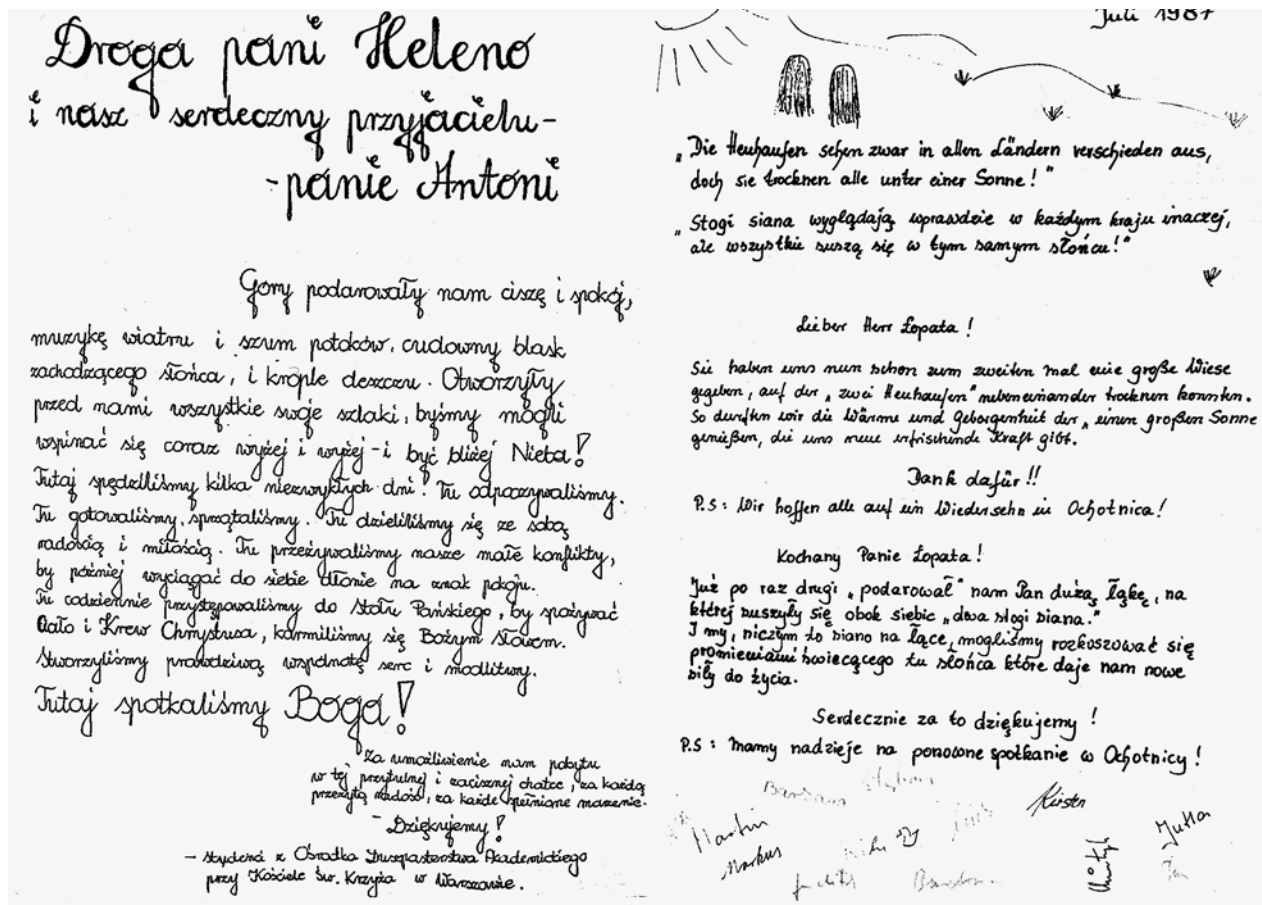 Droga pani Heleno
i nasz serdeczny przyjacielu-
-panie Antoni
Góry podarowały nam ciszę i spokój,
muzykę wiatru i szum potoków, cudowny blask
zachodzącego słońca, i krople deszczu. Otworzyły
przed nami wszystkie swoje szlaki, byśmy mogli
wspinać się coraz wyżej i wyżej - i być bliżej Nieba!
Tutaj spędziliśmy kilka niezwykłych dni. Tu odpoczywaliśmy.
Tu gotowaliśmy, sprzątaliśmy. Tu dzieliliśmy się ze sobą
radością i miłością. Tu przeżywaliśmy nasze małe konflikty,
by później wyciągać do siebie dłonie na znak pokoju.
Tu codziennie przystępowaliśmy do Stołu Pańskiego, by spożywać
Ciało i Krew Chrystusa, karmiliśmy się Bożym Słowem.
Stworzyliśmy prawdziwą wspólnotę serc i modlitwy.
Tutaj spotkaliśmy Boga!
Za umożliwienie nam pobytu
w tej przytulnej i zacisznej chatce, za każdą
przeżytą radość, za każde spełnione marzenie.
- Dziękujemy!
- studenci z Ośrodka Duszpasterstwa Akademickiego
przy Kościele Św. Krzyża w Warszawie.
Juli 1987
„Die Heuhaufen sehen zwar in allen Ländern verschieden aus,
doch sie trocknen alle unter einer Sonne!"
„Stogi siana wyglądają wprawdzie w każdym kraju inaczej,
ale wszystkie suszą się w tym samym słońcu!"
Lieber Herr Łopata!
Sie haben uns nun schon zum zweiten mal eine große Wiese
gegeben, auf der „zwei Heuhaufen" nebeneinander trocknen konnten.
So durften wir die Wärme und Geborgenheit der „einen großen Sonne
genießen, die uns neue erfrischende Kraft gibt.
Dank dafür!!
P.S: Wir hoffen alle auf ein Wiedersehn in Ochotnica!
Kochany Panie Łopata!
Już po raz drugi „podarował" nam Pan dużą łąkę, na
której suszyły się obok siebie „dwa stogi siana."
I my, niczym to siano na łące, mogliśmy rozkoszować się
promieniami świecącego tu słońca które daje nam nowe
siły do życia.
Serdecznie za to dziękujemy!
P.S: Mamy nadzieje na ponowne spotkanie w Ochotnicy!
Barbara
Kirsten
Martin
Jutta
Markus
Judith
Jan